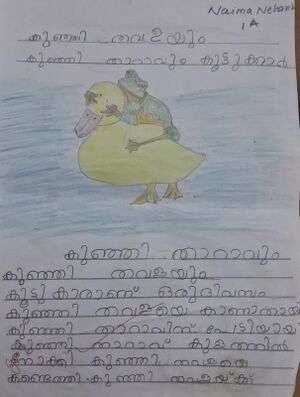 Naima Nehan
1A
കുഞ്ഞി തവളയും
കുഞ്ഞി താറാവും കൂട്ടുക്കാർ
കുഞ്ഞി താറാവും
കുഞ്ഞി തവളയും
കൂട്ടുകാരാണ് ഒരുദിവസം
കുഞ്ഞി തവളയെ കാണാതായി
കുഞ്ഞി താറാവിന് പേടിയായി
കുഞ്ഞി താറാവ് കുളത്തിൽ
നോക്കി കുഞ്ഞി തവളയെ
കണ്ടെത്തി കുഞ്ഞി തവളയ്ക്ക്